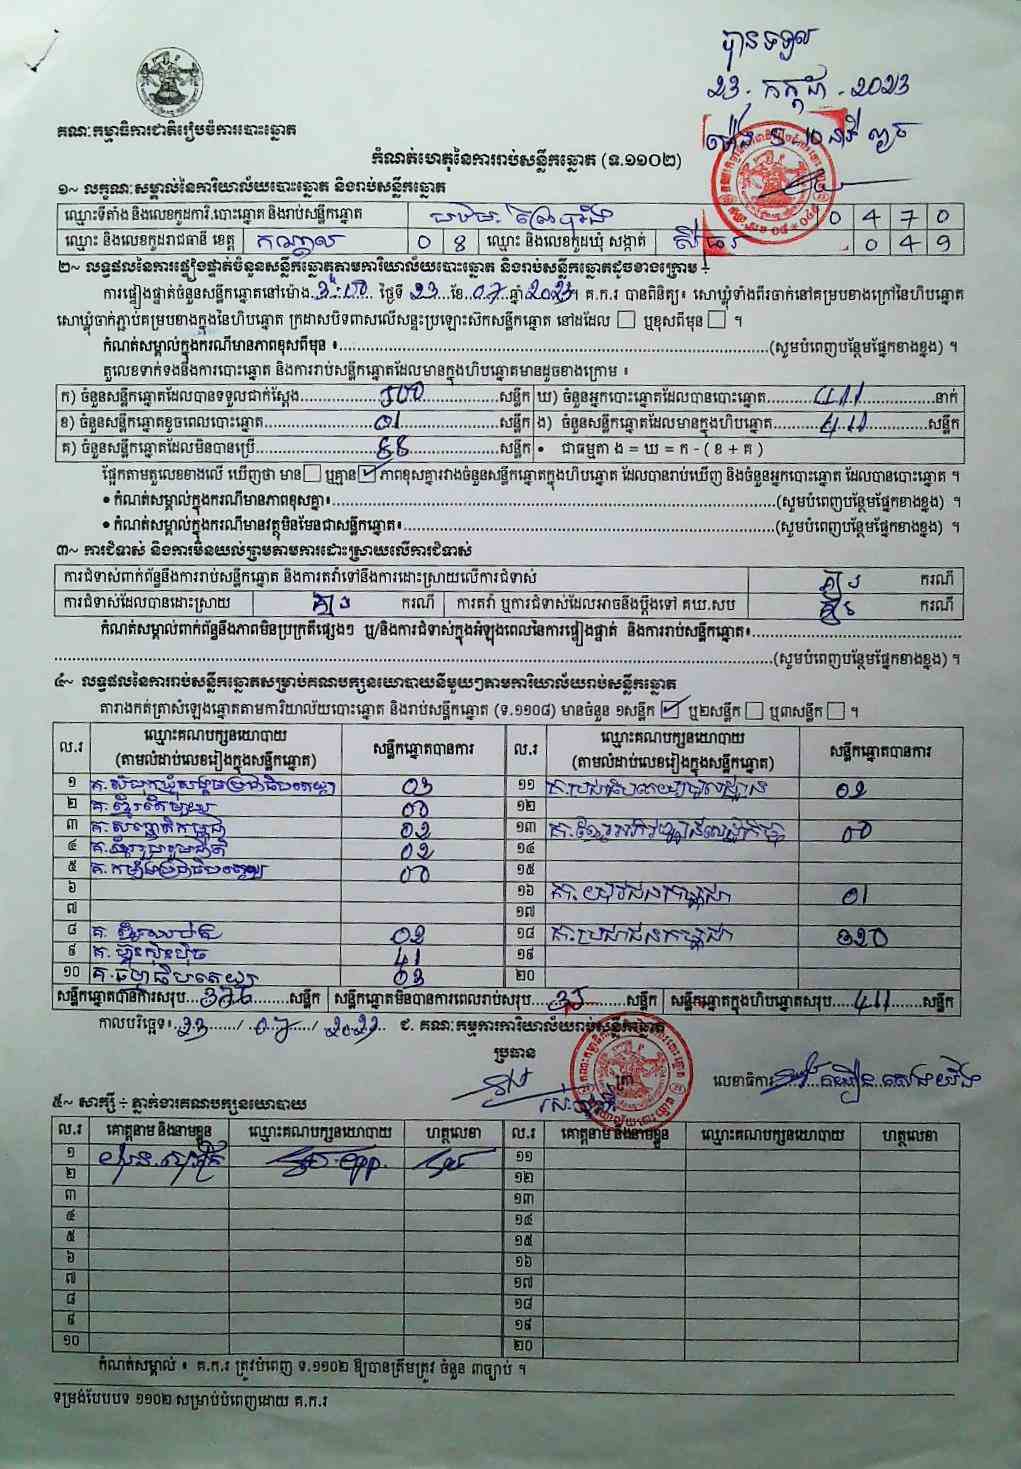 បានទទួល
23. កក្កដា. 2023
គណៈកម្មាធិការជាតិរៀបចំការបោះឆ្នោត
កំណត់ហេតុនៃការរាប់សន្លឹកឆ្នោត (ទ.១១០២)
១~ លក្ខណៈសម្គាល់នៃការិយាល័យបោះឆ្នោត និងរាប់សន្លឹកឆ្នោត
ឈ្មោះទីតាំង និងលេខកូដការិ.បោះឆ្នោត និងរាប់សន្លឹកឆ្នោត 0 4 7 0
ឈ្មោះ និងលេខកូដរាជធានី ខេត្ត កណ្តាល 0 8 ឈ្មោះ និងលេខកូដឃុំ សង្កាត់ 0 4 9
២~ លទ្ធផលនៃការផ្ទៀងផ្ទាត់ចំនួនសន្លឹកឆ្នោតតាមការិយាល័យបោះឆ្នោត និងរាប់សន្លឹកឆ្នោតដូចខាងក្រោម ÷
ការផ្ទៀងផ្ទាត់ចំនួនសន្លឹកឆ្នោតនៅម៉ោង 3:00 ថ្ងៃទី 23 ខែ 07 ឆ្នាំ 2023 ។ គ.ក.រ បានពិនិត្យ៖ សោឃ្លុំទាំងពីរចាក់នៅគម្របខាងក្រៅនៃហិបឆ្នោត
សោឃ្លុំចាក់ភ្ជាប់គម្របខាងក្នុងនៃហិបឆ្នោត ក្រដាសបិទពាសលើសន្ទះប្រឡោះស៊កសន្លឹកឆ្នោត នៅដដែល ☐ ឬខុសពីមុន ☐ ។
កំណត់សម្គាល់ក្នុងករណីមានភាពខុសពីមុន ៖ (សូមបំពេញបន្ថែមផ្នែកខាងខ្នង) ។
តួលេខទាក់ទងនឹងការបោះឆ្នោត និងការរាប់សន្លឹកឆ្នោតដែលមានក្នុងហិបឆ្នោតមានដូចខាងក្រោម ៖
ក) ចំនួនសន្លឹកឆ្នោតដែលបានទទួលជាក់ស្តែង 500 សន្លឹក ឃ) ចំនួនអ្នកបោះឆ្នោតដែលបានបោះឆ្នោត 411 នាក់
ខ) ចំនួនសន្លឹកឆ្នោតខូចពេលបោះឆ្នោត 01 សន្លឹក ង) ចំនួនសន្លឹកឆ្នោតដែលមានក្នុងហិបឆ្នោត 411 សន្លឹក
គ) ចំនួនសន្លឹកឆ្នោតដែលមិនបានប្រើ 88 សន្លឹក • ជាធម្មតា ង = ឃ = ក - ( ខ + គ )
ផ្អែកតាមតួលេខខាងលើ ឃើញថា មាន ☐ ឬគ្មាន ☑ ភាពខុសគ្នារវាងចំនួនសន្លឹកឆ្នោតក្នុងហិបឆ្នោត ដែលបានរាប់ឃើញ និងចំនួនអ្នកបោះឆ្នោត ដែលបានបោះឆ្នោត ។
• កំណត់សម្គាល់ក្នុងករណីមានភាពខុសគ្នា៖ (សូមបំពេញបន្ថែមផ្នែកខាងខ្នង) ។
• កំណត់សម្គាល់ក្នុងករណីមានវត្ថុមិនមែនជាសន្លឹកឆ្នោត៖ (សូមបំពេញបន្ថែមផ្នែកខាងខ្នង) ។
៣~ ការជំទាស់ និងការមិនយល់ព្រមតាមការដោះស្រាយលើការជំទាស់
ការជំទាស់ពាក់ព័ន្ធនឹងការរាប់សន្លឹកឆ្នោត និងការតវ៉ាទៅនឹងការដោះស្រាយលើការជំទាស់ គ្មាន ករណី
ការជំទាស់ដែលបានដោះស្រាយ គ្មាន ករណី ការតវ៉ា ឬការជំទាស់ដែលអាចនឹងប្តឹងទៅ គឃ.សប គ្មាន ករណី
កំណត់សម្គាល់ពាក់ព័ន្ធនឹងភាពមិនប្រក្រតីផ្សេងៗ ឬ/និងការជំទាស់ក្នុងអំឡុងពេលនៃការផ្ទៀងផ្ទាត់ និងការរាប់សន្លឹកឆ្នោត៖
(សូមបំពេញបន្ថែមផ្នែកខាងខ្នង) ។
៤~ លទ្ធផលនៃការរាប់សន្លឹកឆ្នោតសម្រាប់គណបក្សនយោបាយនីមួយៗតាមការិយាល័យរាប់សន្លឹកឆ្នោត
តារាងកត់ត្រាសំឡេងឆ្នោតតាមការិយាល័យបោះឆ្នោត និងរាប់សន្លឹកឆ្នោត (ទ.១១០៨) មានចំនួន ១សន្លឹក ☑ ឬ២សន្លឹក ☐ ឬ៣សន្លឹក ☐ ។
ល.រ ឈ្មោះគណបក្សនយោបាយ (តាមលំដាប់លេខរៀងក្នុងសន្លឹកឆ្នោត) សន្លឹកឆ្នោតបានការ ល.រ ឈ្មោះគណបក្សនយោបាយ (តាមលំដាប់លេខរៀងក្នុងសន្លឹកឆ្នោត) សន្លឹកឆ្នោតបានការ
១ 03 ១១ 02
២ 00 ១២
៣ 02 ១៣ 00
៤ 02 ១៤
៥ 00 ១៥
៦ ១៦ 01
៧ ១៧
៨ 02 ១៨ គ.ប្រជាជនកម្ពុជា 320
៩ គ.ហ៊្វុនស៊ិនប៉ិច 41 ១៩
១០ គ.ធម្មាធិបតេយ្យ 03 ២០
សន្លឹកឆ្នោតបានការសរុប 376 សន្លឹក សន្លឹកឆ្នោតមិនបានការពេលរាប់សរុប 35 សន្លឹក សន្លឹកឆ្នោតក្នុងហិបឆ្នោតសរុប 411 សន្លឹក
កាលបរិច្ឆេទ៖ 23 / 07 / 2023 ជ. គណៈកម្មការការិយាល័យរាប់សន្លឹកឆ្នោត
ប្រធាន
ត្រា
លេខាធិការ
៥~ សាក្សី ÷ ភ្នាក់ងារគណបក្សនយោបាយ
ល.រ គោត្តនាម និងនាមខ្លួន ឈ្មោះគណបក្សនយោបាយ ហត្ថលេខា ល.រ គោត្តនាម និងនាមខ្លួន ឈ្មោះគណបក្សនយោបាយ ហត្ថលេខា
១ ១១
២ ១២
៣ ១៣
៤ ១៤
៥ ១៥
៦ ១៦
៧ ១៧
៨ ១៨
៩ ១៩
១០ ២០
កំណត់សម្គាល់ ៖ គ.ក.រ ត្រូវបំពេញ ទ.១១០២ ឱ្យបានត្រឹមត្រូវ ចំនួន ៣ច្បាប់ ។
ទម្រង់បែបបទ ១១០២ សម្រាប់បំពេញដោយ គ.ក.រ